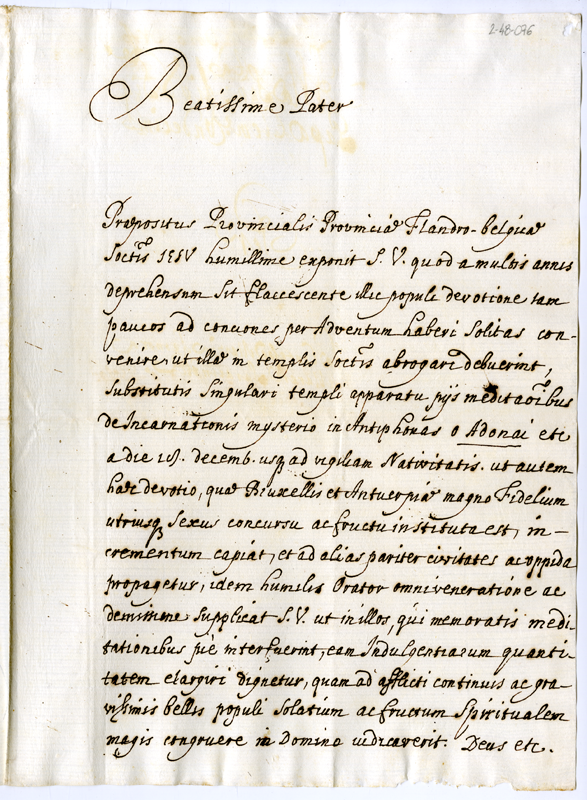 2-48-076
Beatissime Pater
Præpositus Provincialis Provinciæ Flandro-belgicæ
Soctis IESV humillime exponit S. V. quod a multis annis
deprehensum sit flaccescente illic populi devotione tam
paucos ad conciones per Adventum haberi solitas con-
venire, ut illæ in templis Soctis abrogari debuerint,
substitutis singulari templi apparatu pijs meditaoibus
de Incarnationis mysterio in Antiphonas o Adonai etc
a die decemb. usq ad vigiliam Nativitatis. ut autem
hæc devotio, quæ Bruxellis et Antuerpiæ magno Fidelium
utriusq sexus concursu ac fructu instituta est, in-
crementum capiat, et ad alias pariter civitates ac oppida
propagetur, idem humilis Orator omni veneratione ac
demissime supplicat S. V. ut in illos, qui memoratis medi-
tationibus pie interfuerint, eam Indulgentiarum quanti-
tatem elargiri dignetur, quam ad afflicti continuis ac gra-
vissimis bellis populi solatium ac fructum spiritualem
magis congruere in Domino iudicaverit. Deus etc.